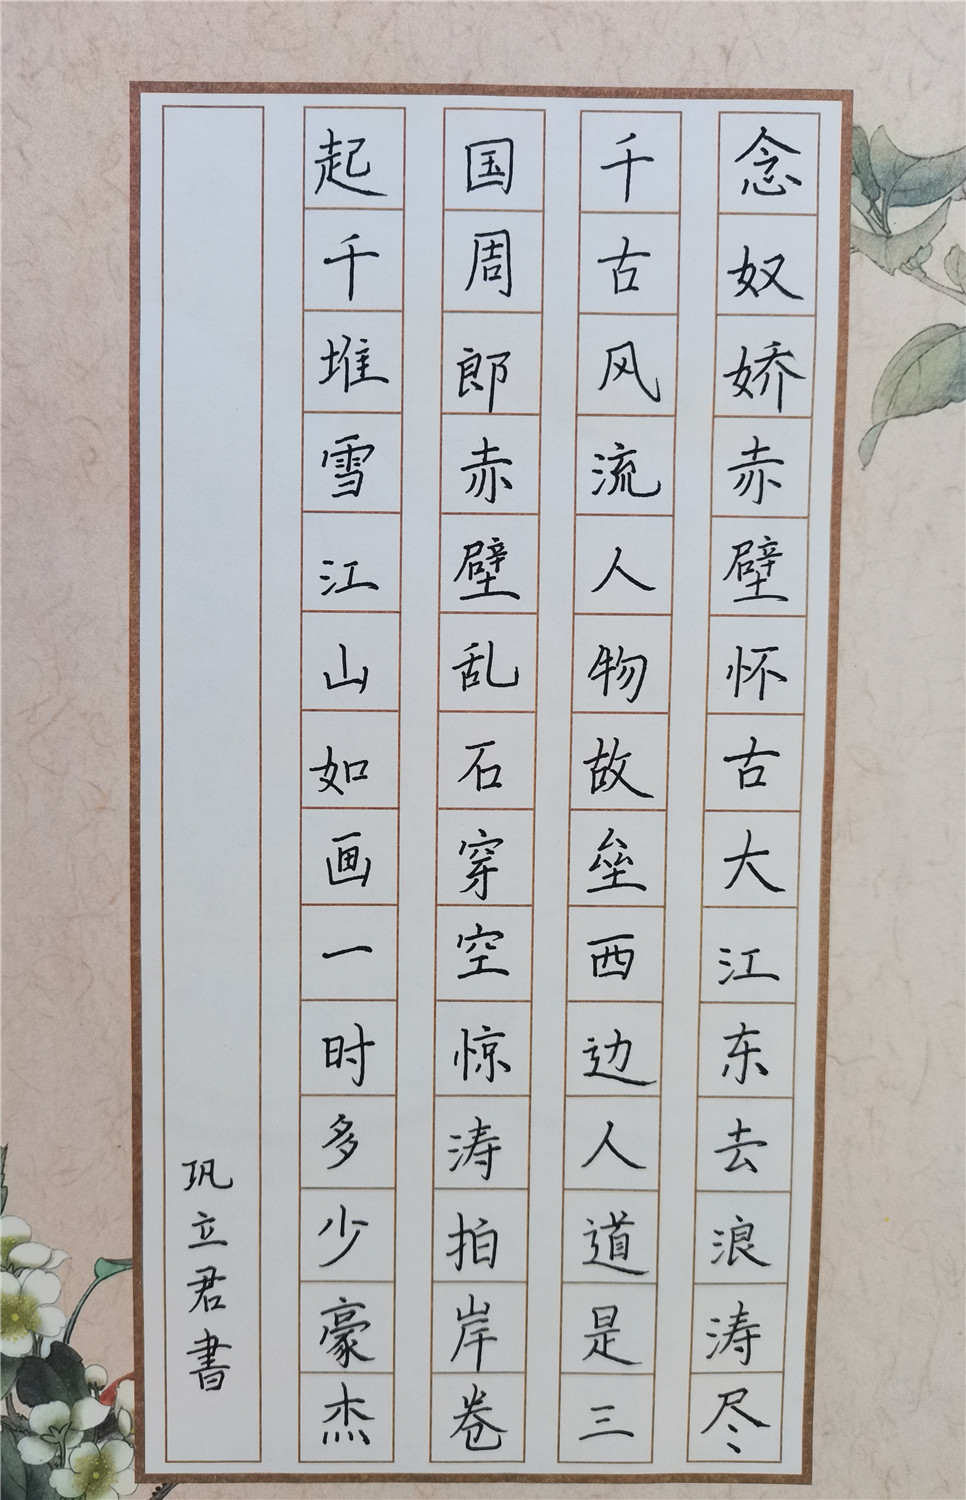 念奴娇赤壁怀古大江东去浪涛尽
千古风流人物故垒西边人道是三
国周郎赤壁乱石穿空惊涛拍岸卷
起千堆雪江山如画一时多少豪杰
巩立君書